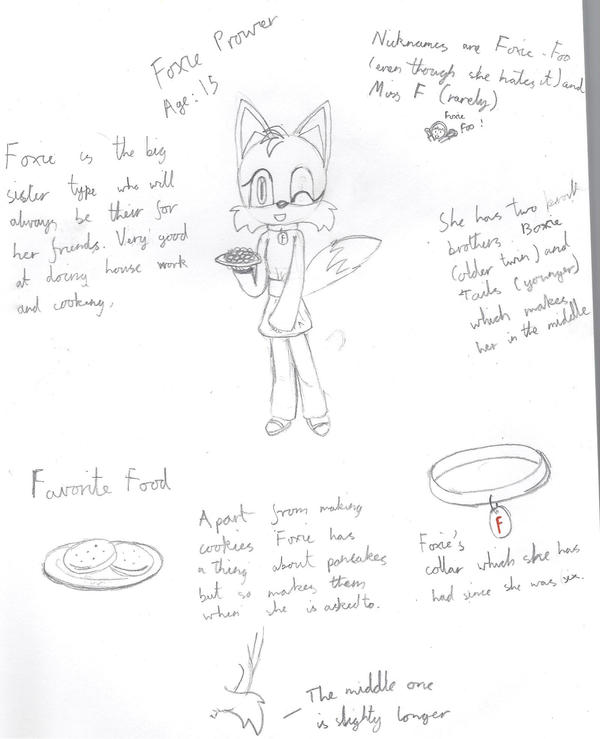 Foxie Prower
Age: 15
Nicknames are Foxie-Foo
(even though she hates it) and
Miss F (rarely)
Foxie
Foo!
Foxie is the big
sister type who will
always be their for
her friends. Very good
at doing house work
and cooking,
F
She has two
brothers Boxie
(older twin) and
Tails (younger)
which makes
her in the middle
Favorite Food
Apart from making
cookies Foxie has
a thing about pancakes
but so makes them
when she is asked to.
F
Foxie's
collar which she has
had since she was six.
The middle one
is slighty longer